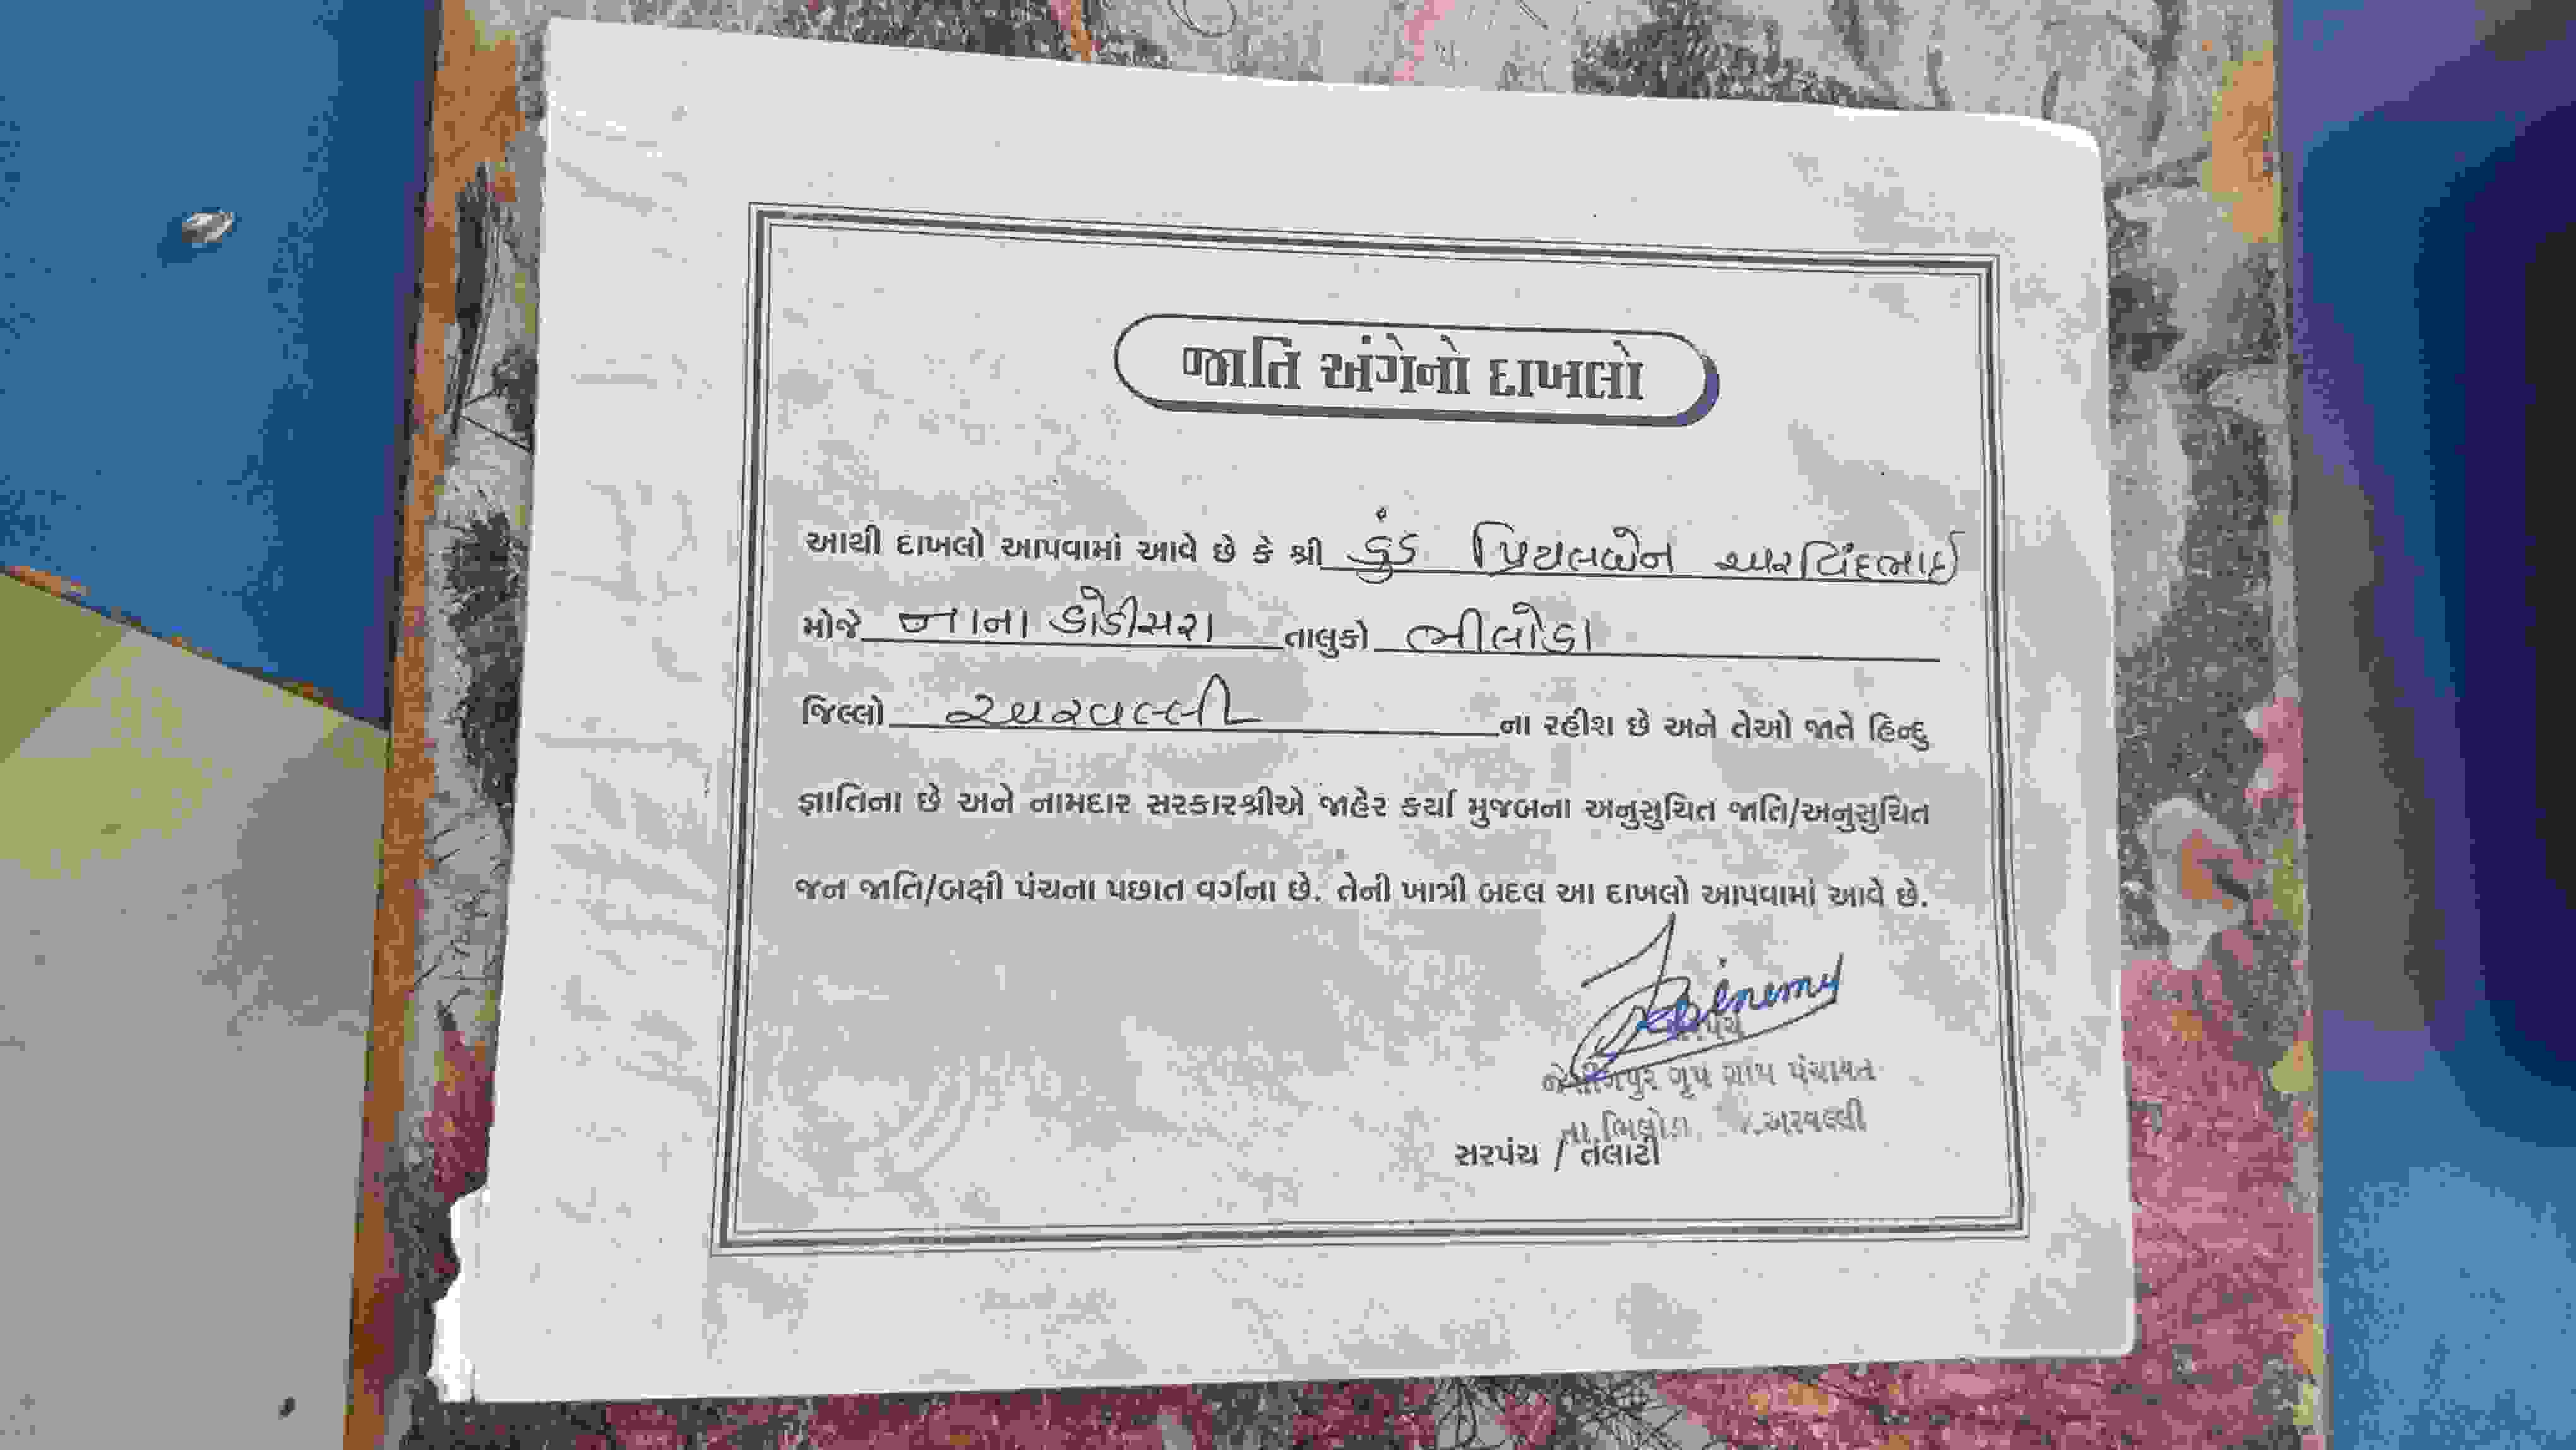 જાતિ અંગેનો દાખલો
આથી દાખલો આપવામાં આવે છે કે શ્રી ડુંડ પ્રિયલબેન અરવિંદભાઈ
મોજે નાના ડોડીસરા તાલુકો ભીલોડા
જિલ્લો અરવલ્લી ના રહીશ છે અને તેઓ જાતે હિન્દુ
જ્ઞાતિના છે અને નામદાર સરકારશ્રીએ જાહેર કર્યા મુજબના અનુસુચિત જાતિ/અનુસુચિત
જન જાતિ/બક્ષી પંચના પછાત વર્ગના છે. તેની ખાત્રી બદલ આ દાખલો આપવામાં આવે છે.
ગૃપ ગ્રામ પંચાયત
તા.ભિલોડા અરવલ્લી
સરપંચ / તલાટી